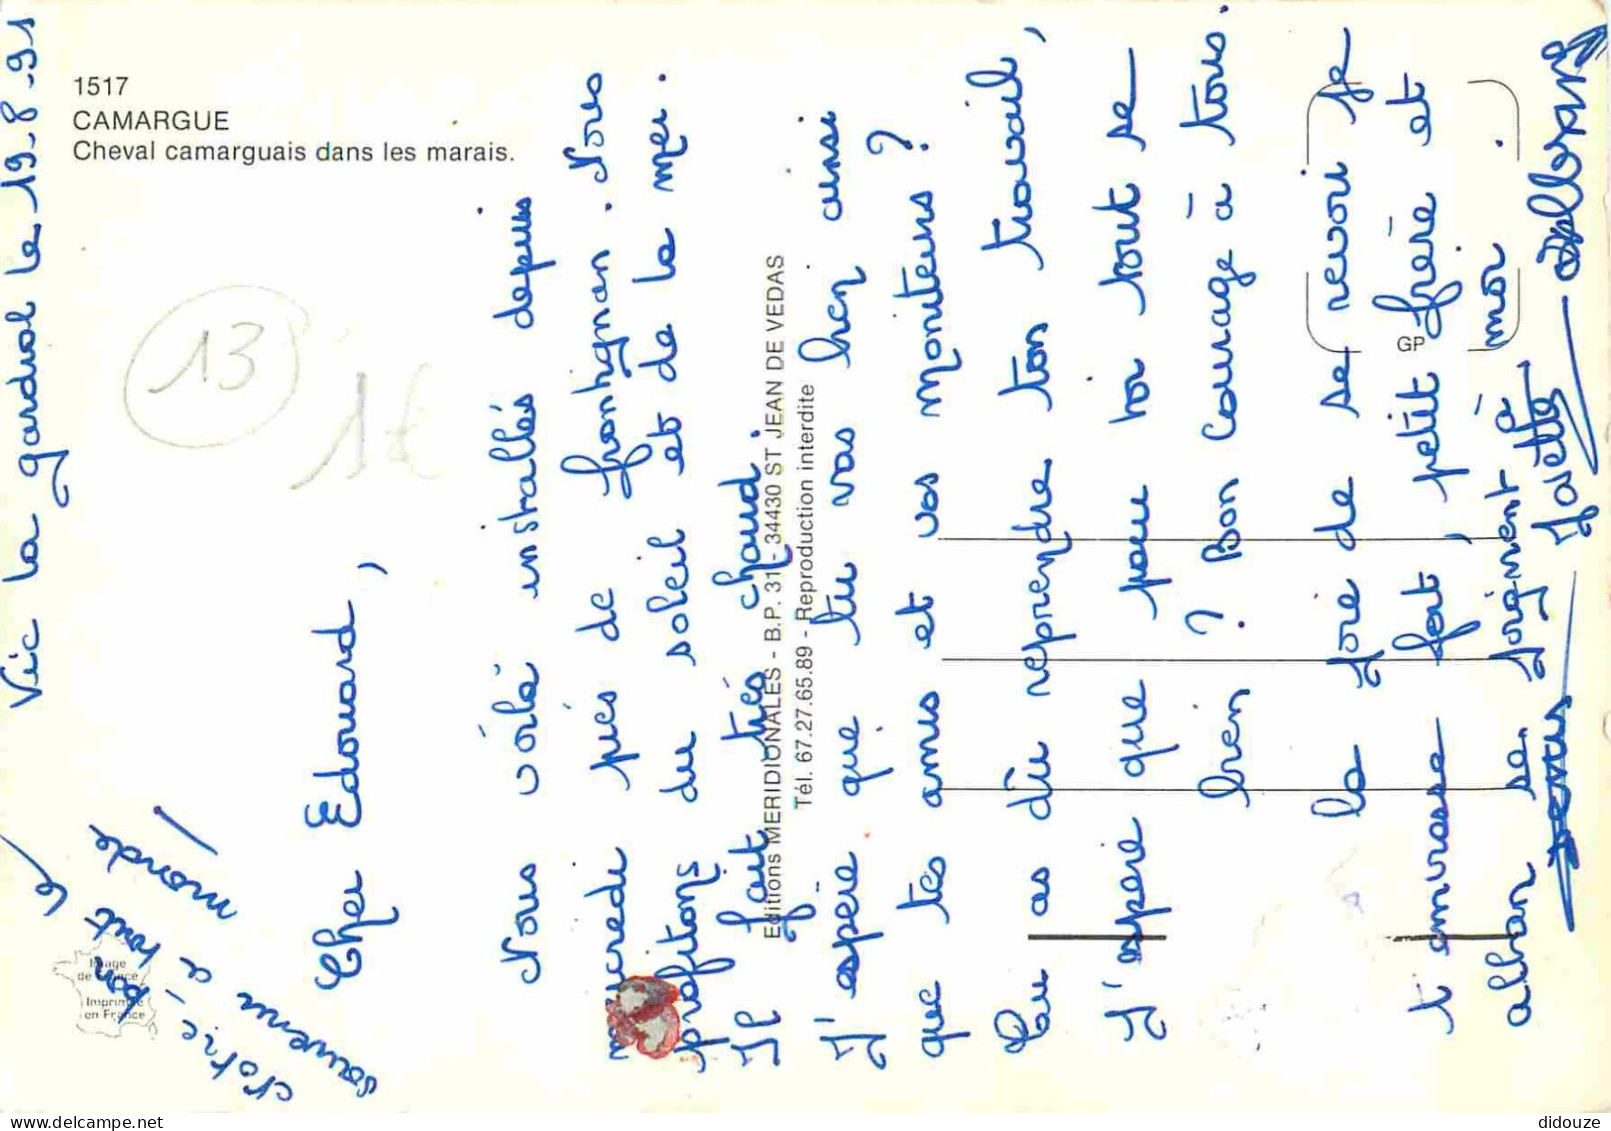 1517
CAMARGUE
Cheval camarguais dans les marais.
Vic la gardiol le 19-8-91
Cher Edouard,
Nous voilà installés depuis
mercredi près de frontignan. Nous
profitons du soleil et de la mer.
Il fait très chaud.
J'espère que tu vas bien ainsi
que tes amis et vos moniteurs ?
Tu as dû reprendre ton travail,
J'espère que pour toi tout se
bien ? Bon courage à tous.
la joie de se revoir je
t'embrasse fort, petit frère et
alban se joignent à moi.
Joëlle
Notre bon
souvenir à tout le
monde !
Editions MERIDIONALES - B.P. 31 - 34430 ST JEAN DE VEDAS
Tél. 67.27.65.89 - Reproduction interdite
Image
de France
Imprimé
en France
GP
13
1€
didouze